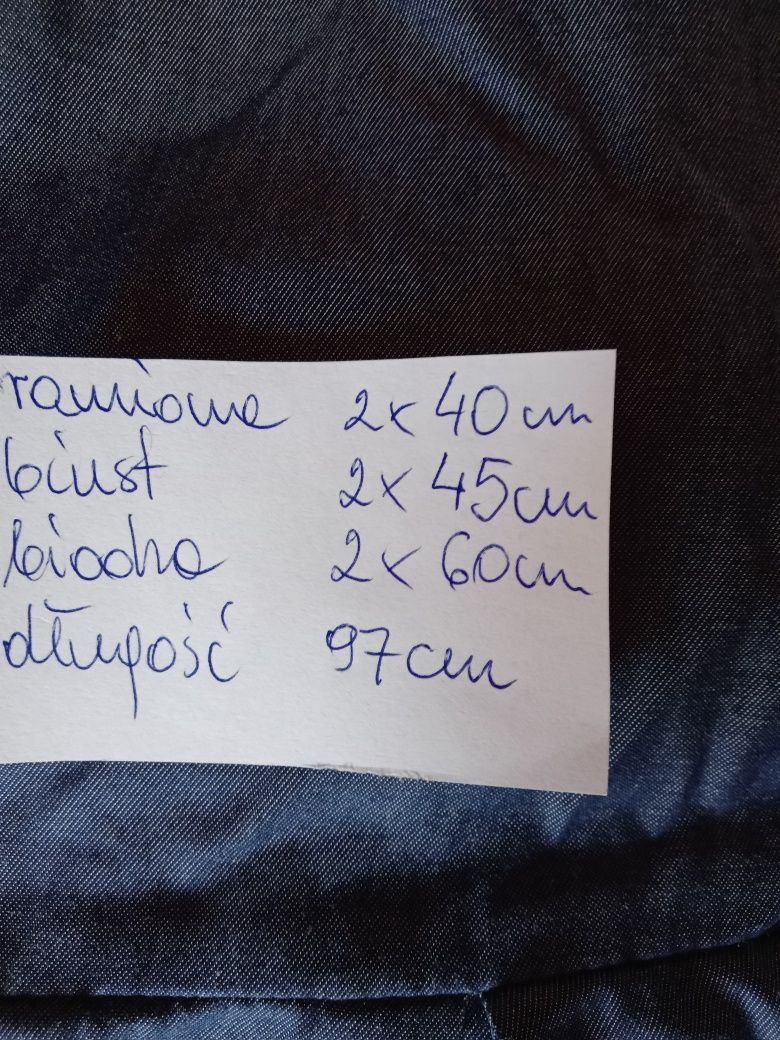 ramiona 2x40cm
biust 2x45cm
biodra 2x60cm
długość 97cm